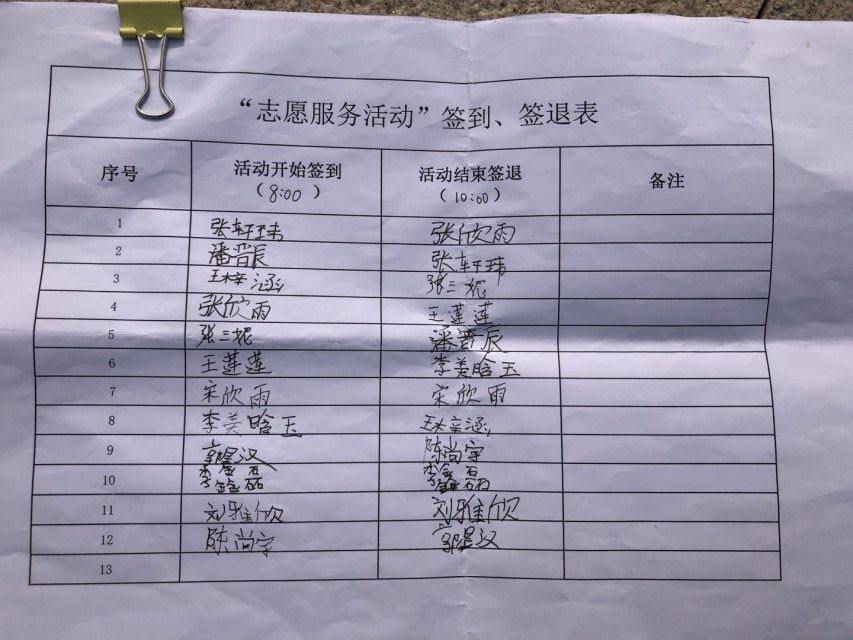 “志愿服务活动”签到、签退表
序号 活动开始签到 活动结束签退 备注
（8:00） （10:00）
1 张轩玮 张欣雨
2 潘晋辰 张轩玮
3 王梓涵 张三妮
4 张欣雨 王莲莲
5 张三妮 潘晋辰
6 王莲莲 李美晗玉
7 宋欣雨 宋欣雨
8 李美晗玉 王梓涵
9 郭星汉 陈尚宇
10 李鑫磊 李鑫磊
11 刘雅欣 刘雅欣
12 陈尚宇 郭星汉
13